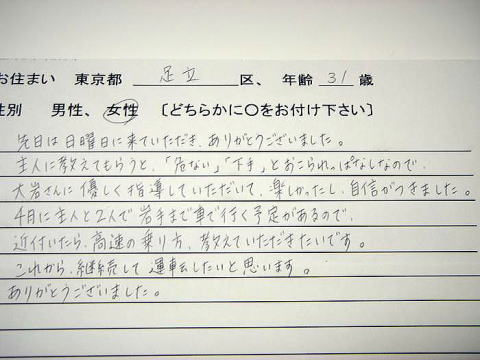 お住まい 東京都 足立 区、 年齢 31 歳
性別 男性、 女性 〔どちらかに〇をお付け下さい〕
先日は日曜日に来ていただき、ありがとうございました。
主人に教えてもらうと、「危ない」「下手」とおこられっぱなしなので、
大岩さんに優しく指導していただいて、楽しかったし、自信がつきました。
4月に主人と2人で岩手まで車で行く予定があるので、
近付いたら、高速の乗り方、教えていただきたいです。
これから、継続して運転したいと思います。
ありがとうございました。